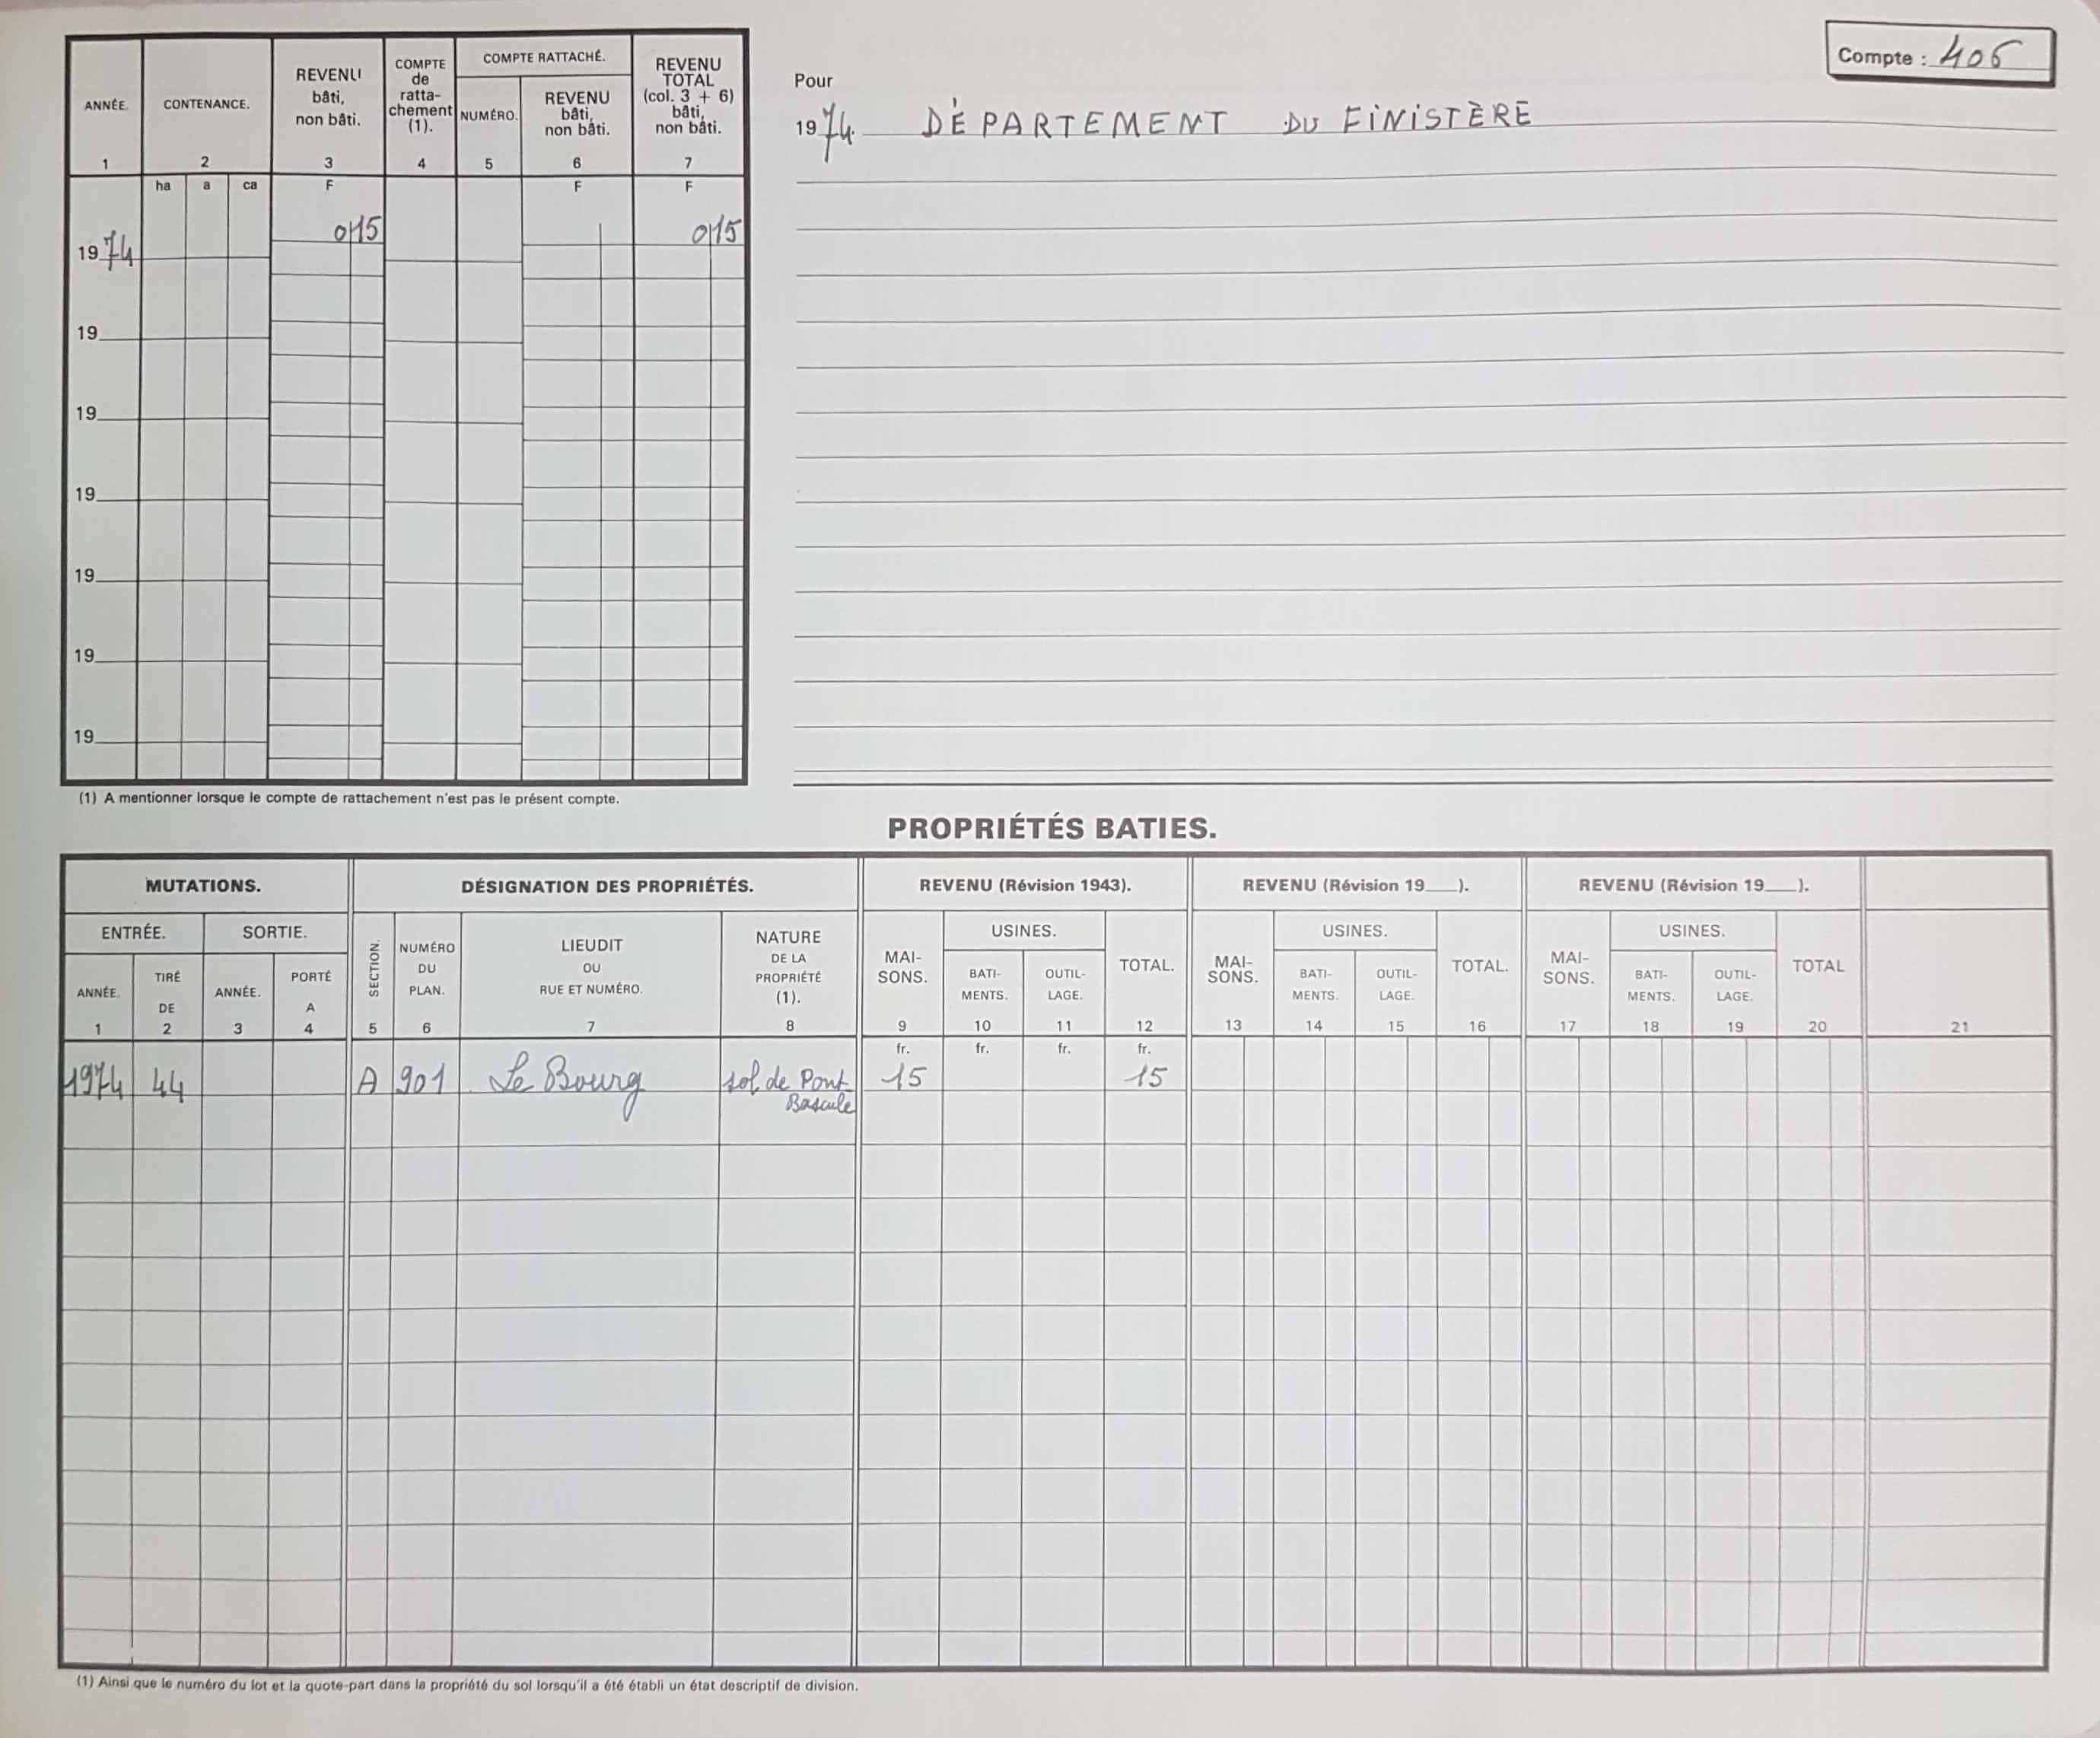 Compte : 406
ANNÉE. CONTENANCE. REVENU bâti, non bâti. COMPTE de ratta-chement (1). COMPTE RATTACHÉ. NUMÉRO. REVENU bâti, non bâti. REVENU TOTAL (col. 3 + 6) bâti, non bâti.
1 2 3 4 5 6 7
ha a ca F F F
1974 0 15 0 15
19
19
19
19
19
19
(1) A mentionner lorsque le compte de rattachement n'est pas le présent compte.
Pour
1974. DÉPARTEMENT DU FINISTÈRE
PROPRIÉTÉS BATIES.
MUTATIONS. DÉSIGNATION DES PROPRIÉTÉS. REVENU (Révision 1943). REVENU (Révision 19__). REVENU (Révision 19__).
ENTRÉE. SORTIE. SECTION. NUMÉRO DU PLAN. LIEUDIT OU RUE ET NUMÉRO. NATURE DE LA PROPRIÉTÉ (1). MAI-SONS. USINES. TOTAL. MAI-SONS. USINES. TOTAL. MAI-SONS. USINES. TOTAL
ANNÉE. TIRÉ DE ANNÉE. PORTÉ A BATI-MENTS. OUTIL-LAGE. BATI-MENTS. OUTIL-LAGE. BATI-MENTS. OUTIL-LAGE.
1 2 3 4 5 6 7 8 9 10 11 12 13 14 15 16 17 18 19 20 21
fr. fr. fr. fr.
1974 44 A 901 Le Bourg sol de Pont 15 15
Bascule
(1) Ainsi que le numéro du lot et la quote-part dans la propriété du sol lorsqu'il a été établi un état descriptif de division.